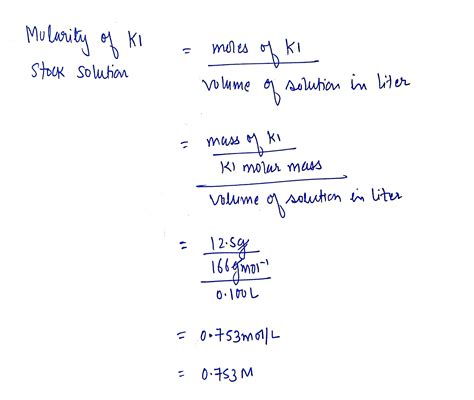 Molarity of KI = moles of KI
Stock solution volume of solution in liter
= mass of KI
KI molar mass
volume of solution in liter
= 12.5g
166gmol⁻¹
0.100L
= 0.753mol/L
= 0.753M